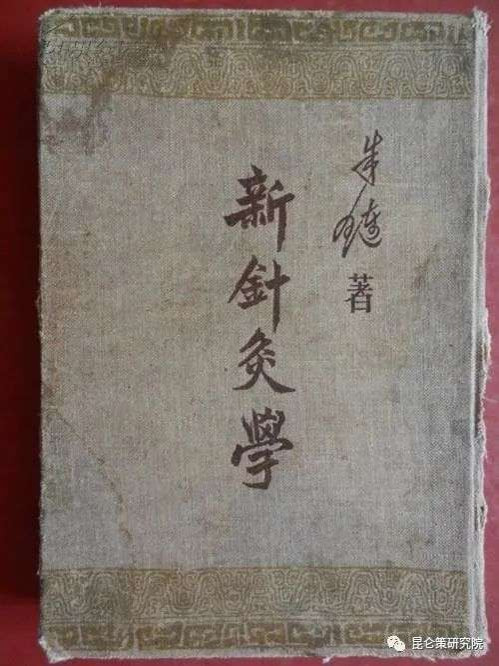 朱璉 著
新針灸學
昆仑策研究院